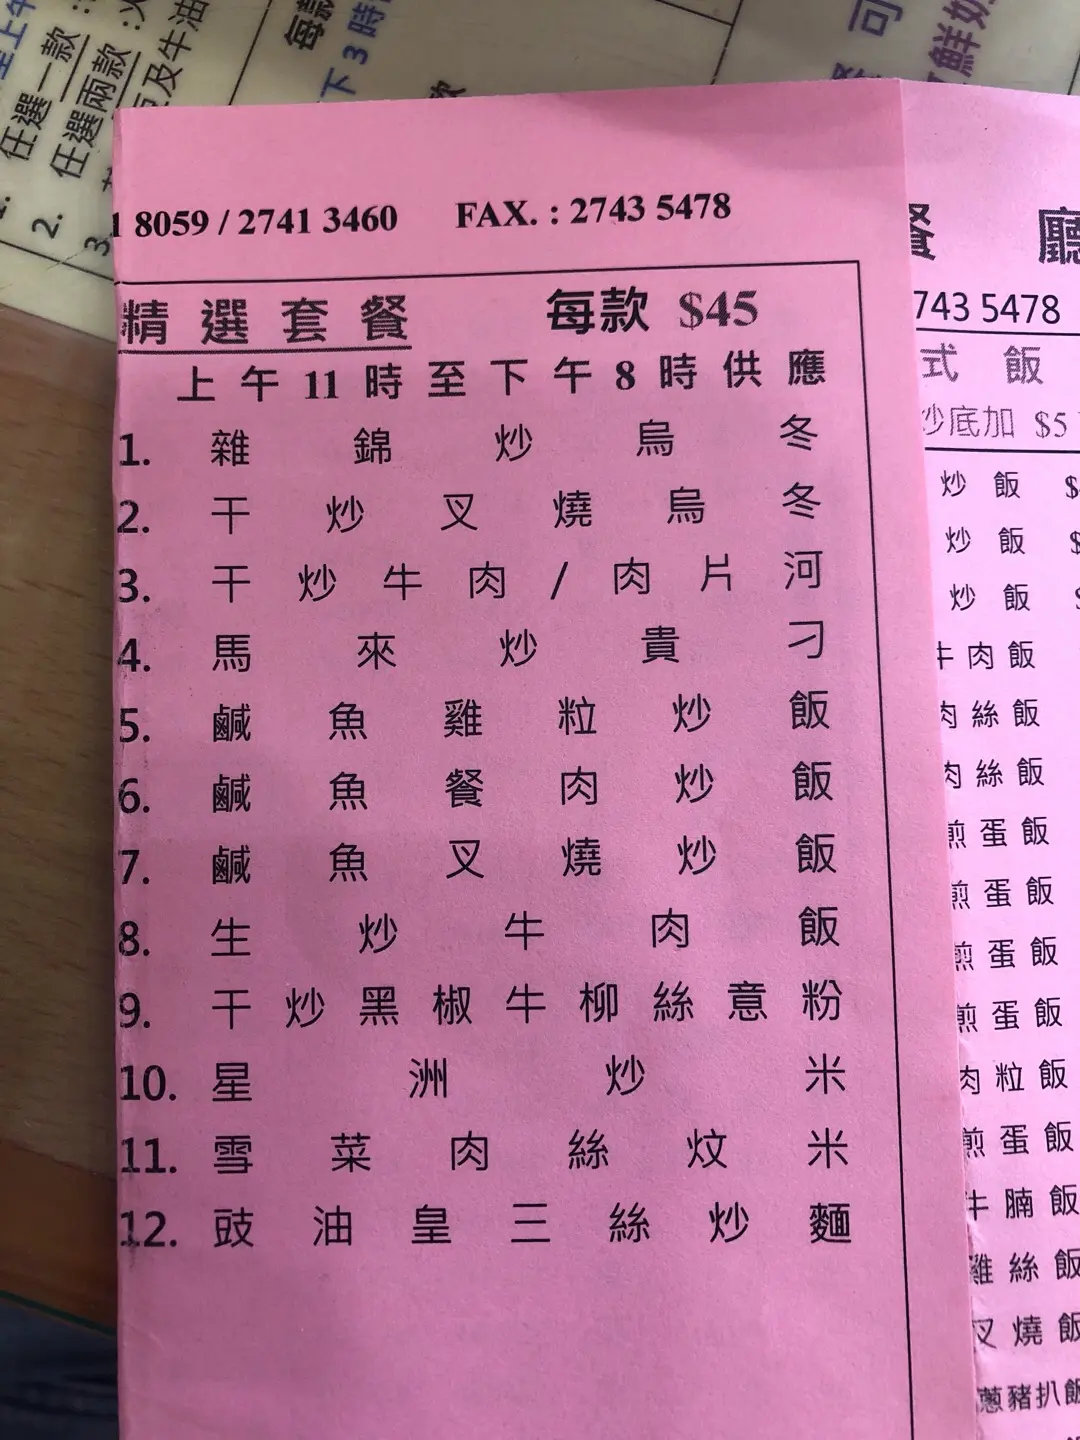 任選一款
任選兩款
及牛油
每款
下3時
可
鮮奶
1 8059 / 2741 3460 FAX. : 2743 5478
精選套餐 每款 $45
上午11時至下午8時供應
1. 雜錦炒烏冬
2. 干炒叉燒烏冬
3. 干炒牛肉/肉片河
4. 馬來炒貴刁
5. 鹹魚雞粒炒飯
6. 鹹魚餐肉炒飯
7. 鹹魚叉燒炒飯
8. 生炒牛肉飯
9. 干炒黑椒牛柳絲意粉
10. 星洲炒米
11. 雪菜肉絲炆米
12. 豉油皇三絲炒麵
餐廳
743 5478
式飯
炒底加 $5
炒飯 $
炒飯 $
炒飯
牛肉飯
肉絲飯
肉絲飯
煎蛋飯
煎蛋飯
煎蛋飯
煎蛋飯
肉粒飯
煎蛋飯
牛腩飯
雞絲飯
叉燒飯
蔥豬扒飯